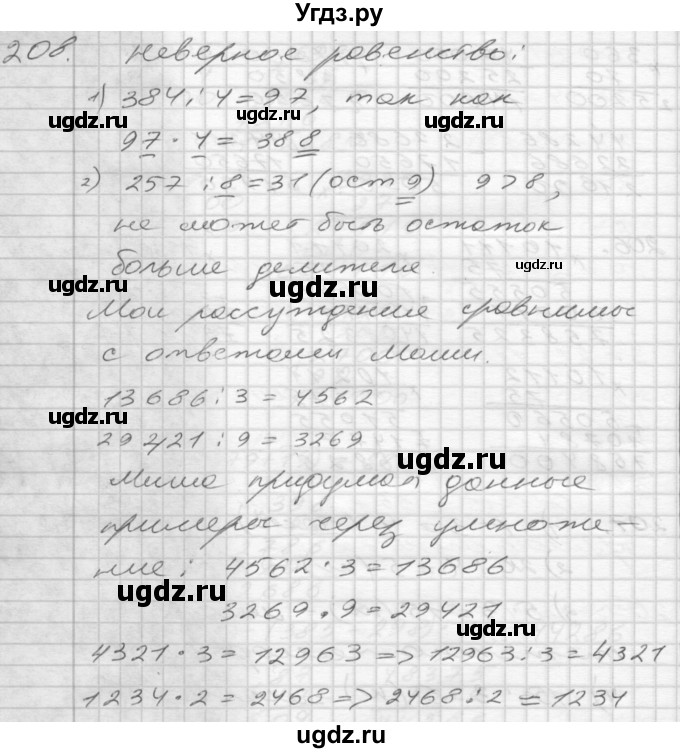 Угдз.ру
208. Неверное равенство:
1) 384 : 4 = 97, так как
97 · 4 = 388
2) 257 : 8 = 31 (ост 9) 9 > 8,
не может быть остаток
больше делителя.
Мои рассуждения сравнимы
с ответами Маши.
13686 : 3 = 4562
29421 : 9 = 3269
Миша придумал данные
примеры через умноже-
ние : 4562 · 3 = 13686
3269 · 9 = 29421
4321 · 3 = 12963 => 12963 : 3 = 4321
1234 · 2 = 2468 => 2468 : 2 = 1234
ugdz.ru
ugdz.ru
ugdz.ru
ugdz.ru
ugdz.ru
ugdz.ru
ugdz.ru
ugdz.ru
ugdz.ru
ugdz.ru
ugdz.ru
ugdz.ru